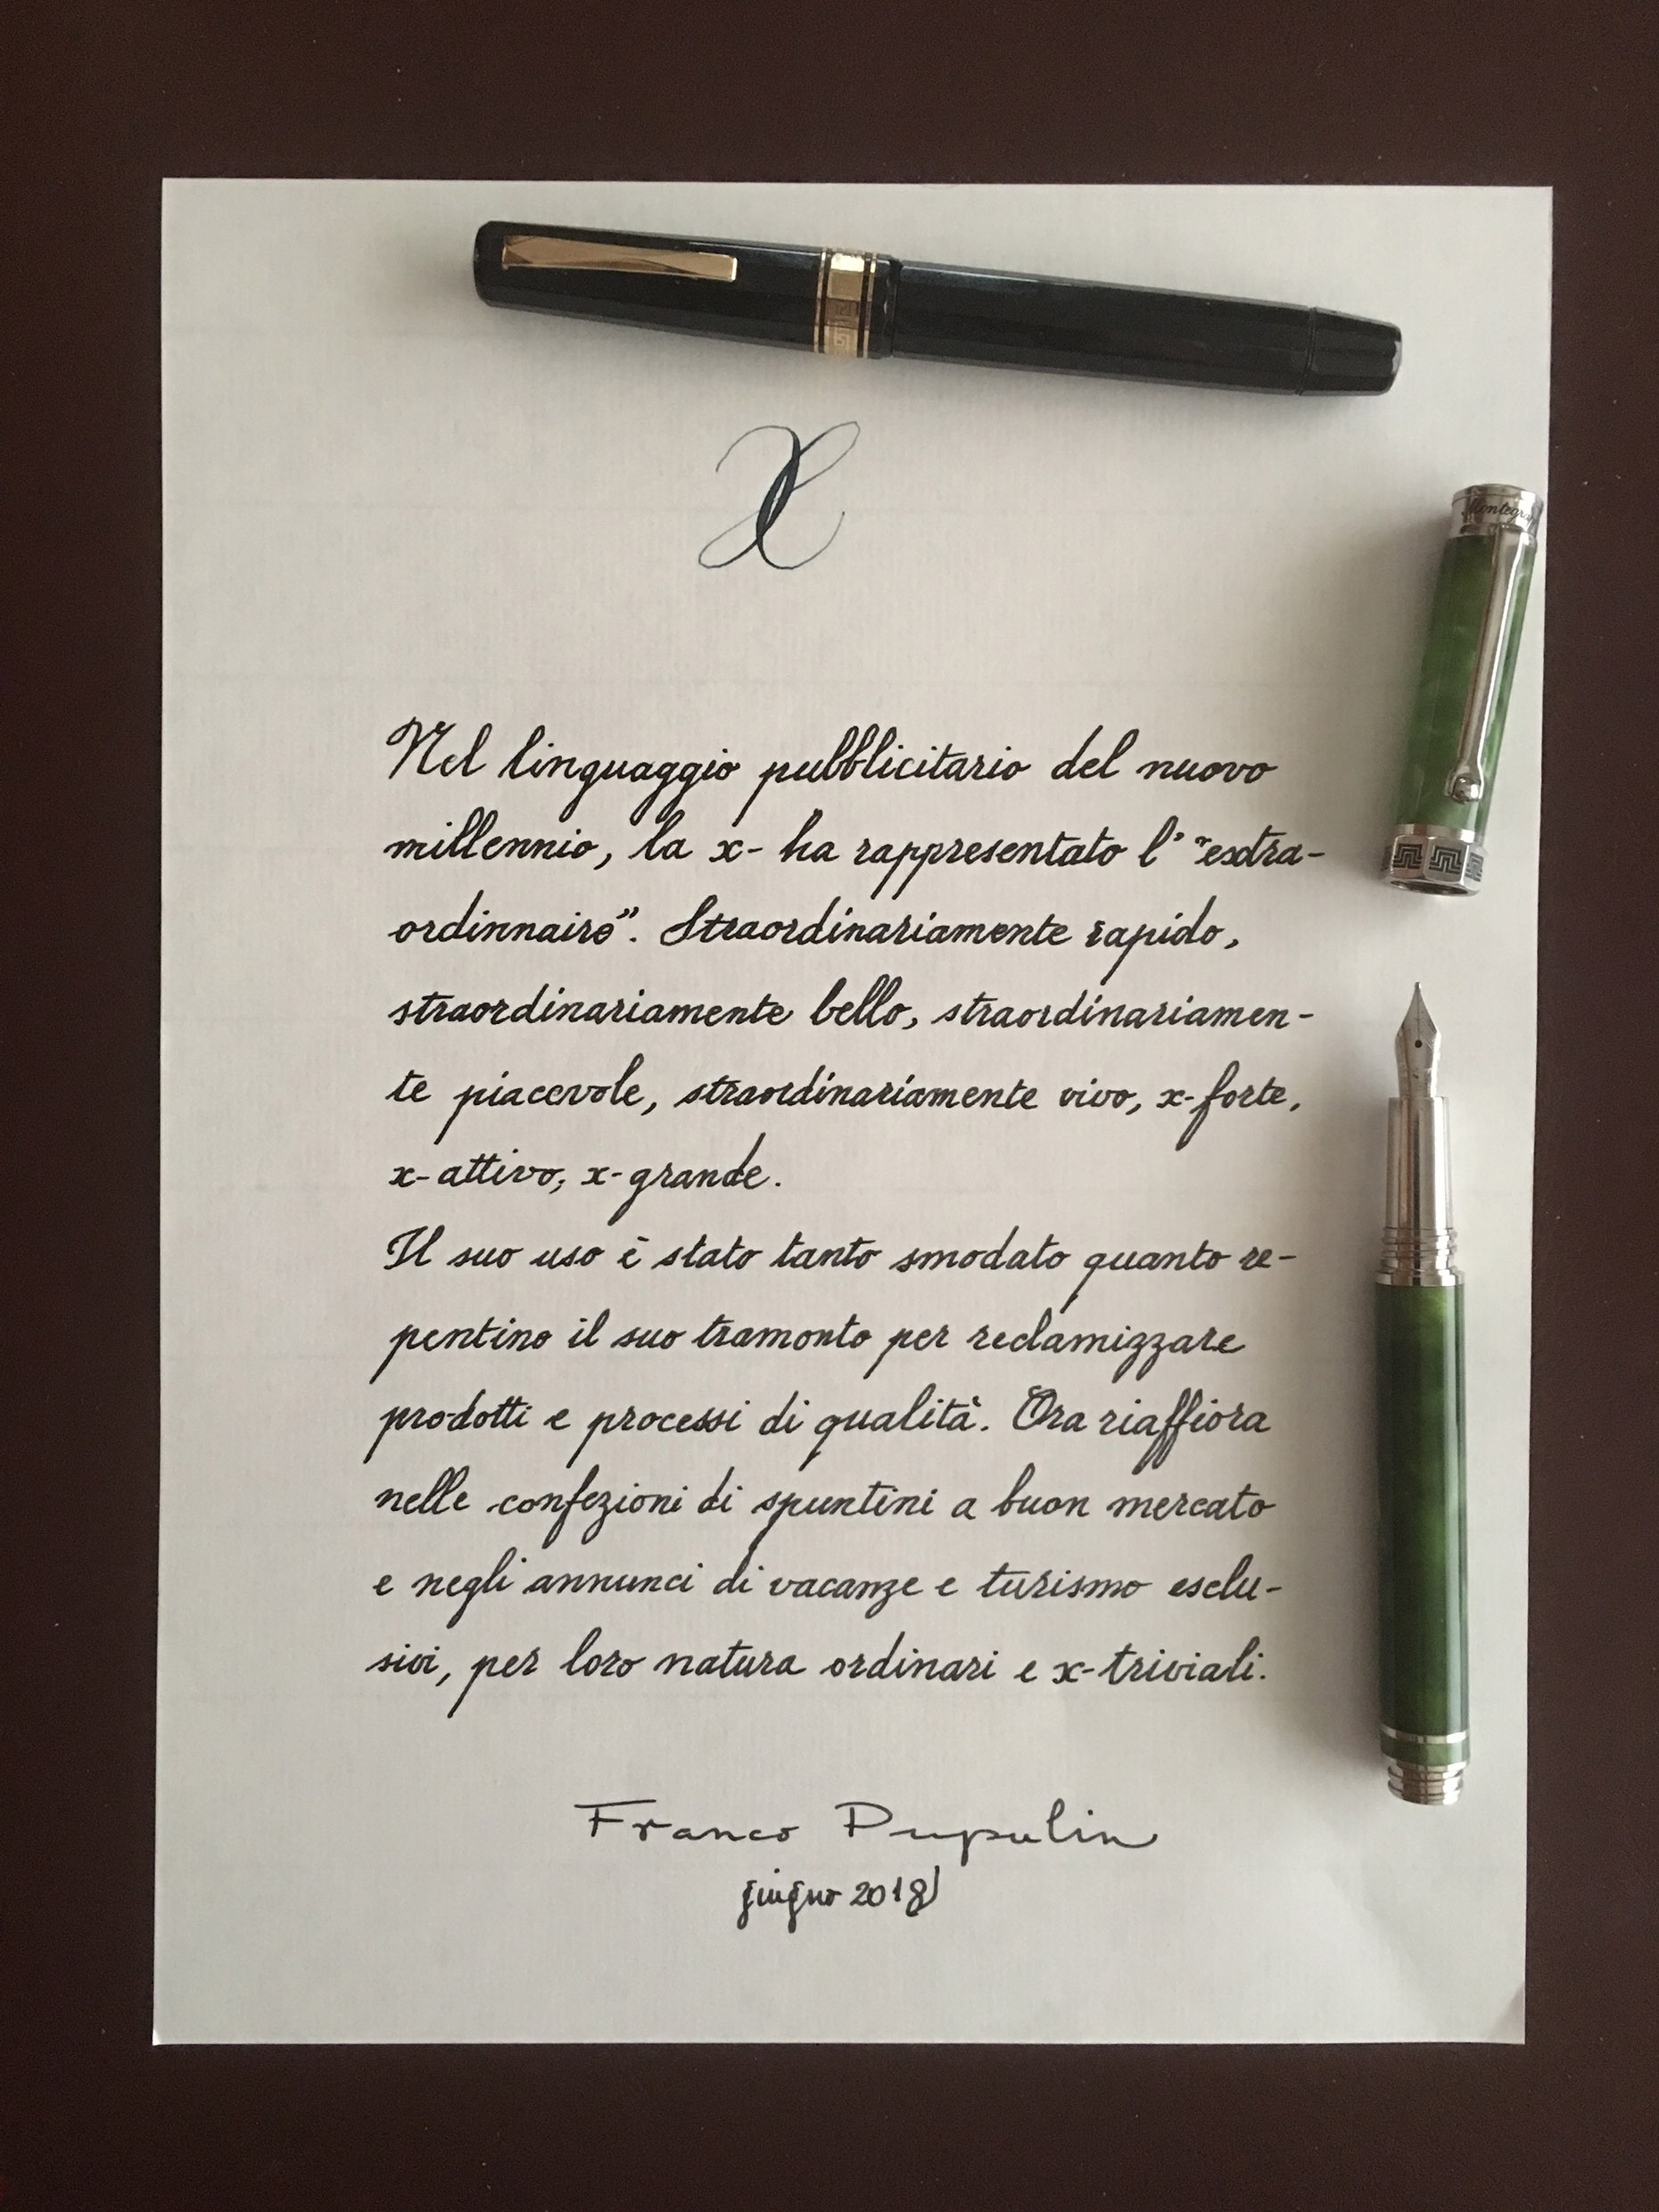 X
Montegra
Nel linguaggio pubblicitario del nuovo
millennio, la x- ha rappresentato l' "extra-
ordinnaire". Straordinariamente rapido,
straordinariamente bello, straordinariamen-
te piacevole, straordinariamente vivo, x-forte,
x-attivo, x-grande.
Il suo uso è stato tanto smodato quanto re-
pentino il suo tramonto per reclamizzare
prodotti e processi di qualità. Ora riaffiora
nelle confezioni di spuntini a buon mercato
e negli annunci di vacanze e turismo esclu-
sivi, per loro natura ordinari e x-triviali.
Franco Pupulin
giugno 2018